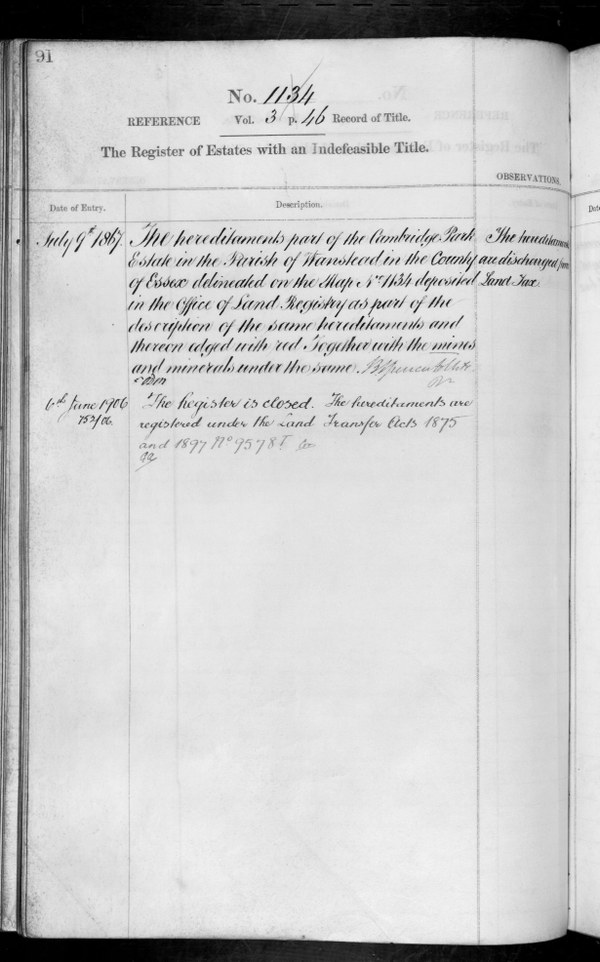 91
No. 1134
REFERENCE Vol. 3 p. 46 Record of Title.
The Register of Estates with an Indefeasible Title.
OBSERVATIONS.
Date of Entry.
Description.
July 9th 1867.
The hereditaments part of the Cambridge Park
Estate in the Parish of Wanstead in the County
of Essex delineated on the Map No 1134 deposited
in the Office of Land Registry as part of the
description of the same hereditaments and
thereon edged with red Together with the mines
and minerals under the same.
The hereditaments
are discharged from
Land Tax.
6th June 1906
The Register is closed. The hereditaments are
registered under the Land Transfer Acts 1875
and 1897 No 9578